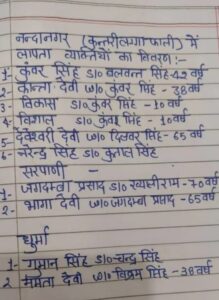 नन्दानगर (कुन्तरीलगा फाली) में
लापता व्यक्तियों का विवरण:-
1- कुंवर सिंह S/O बलवन्त सिंह - 42 वर्ष
2- कान्ता देवी W/O कुंवर सिंह - 38 वर्ष
3- विकास S/O कुंवर सिंह - 10 वर्ष
4- विशाल S/O कुंवर सिंह - 10 वर्ष
5- देवेश्वरी देवी W/O दिलवर सिंह - 65 वर्ष
6- नरेन्द्र सिंह S/O कुताल सिंह
सरपाणी -
1- जगदम्बा प्रसाद S/O ख्याली राम - 70 वर्ष
2- भागा देवी W/O जगदम्बा प्रसाद - 65 वर्ष
धुर्मा
1- गुमान सिंह S/O चन्द्र सिंह
2 ममता देवी W/O विक्रम सिंह - 38 वर्ष